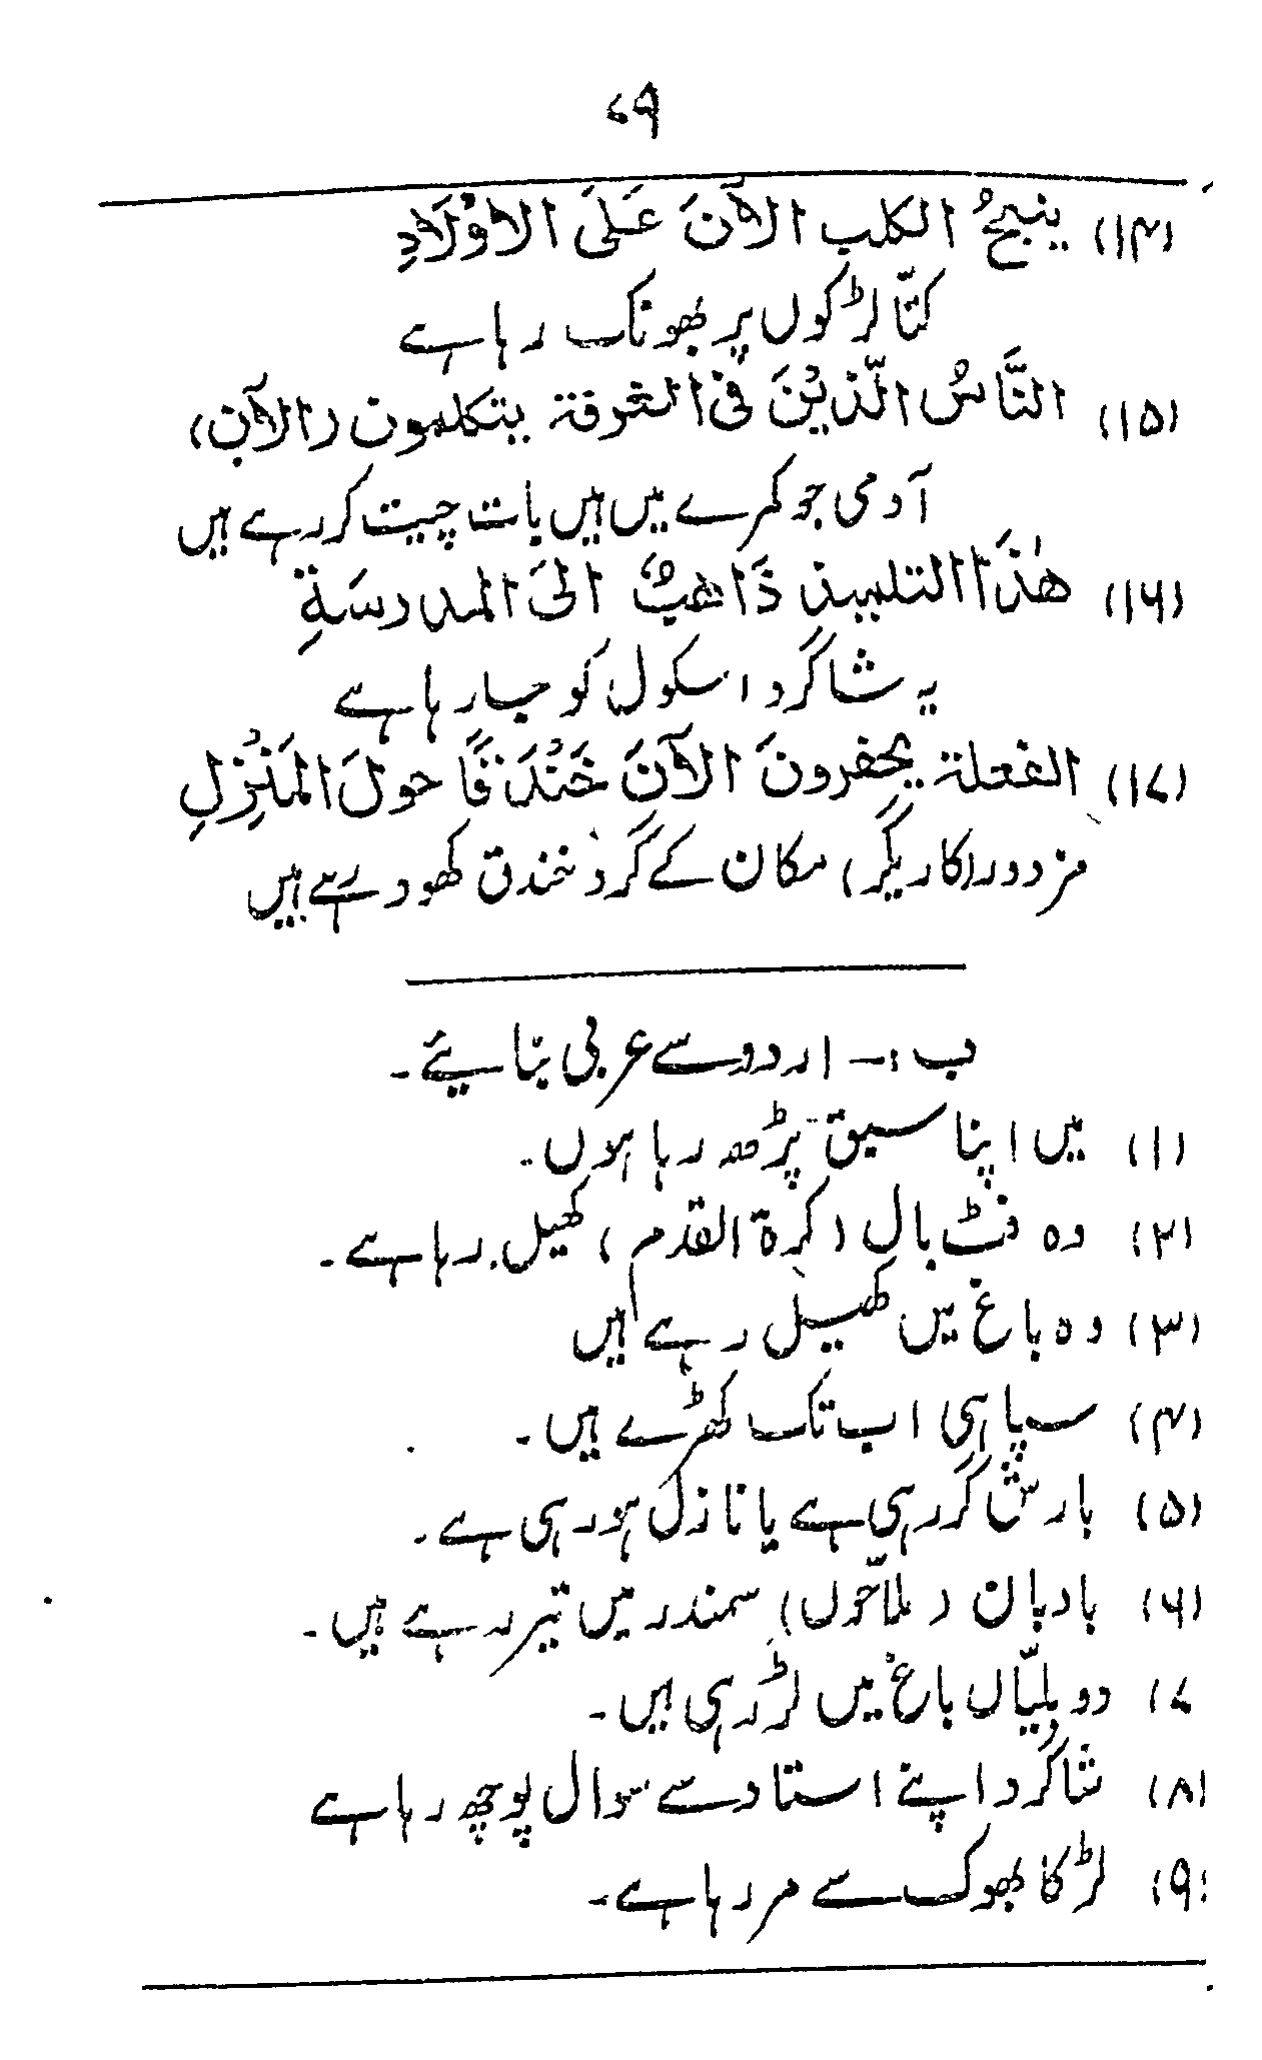 ۷۹
(۱۴) ینبحُ الکلب الآنَ عَلَی الاوْلَادِ
کتّا لڑکوں پر بھونک رہا ہے
(۱۵) النَّاسُ الّذیْنَ فی الغرفۃ یتکلمون (الآن)
آدمی جو کمرے میں ہیں بات چیت کر رہے ہیں
(۱۶) ھٰذَا التلمیذ ذَاھبٌ الیَ المدرسَۃِ
یہ شاگرد اسکول کو جا رہا ہے
(۱۷) الفعلۃ یحفرونَ الآنَ خَنْدَقًا حولَ المَنْزِلِ
مزدور (کاریگر) مکان کے گرد خندق کھود رہے ہیں
ب :۔ اردو سے عربی بنائیے۔
(۱) میں اپنا سبق پڑھ رہا ہوں۔
(۲) وہ فٹ بال (کرۃ القدم) کھیل رہا ہے۔
(۳) وہ باغ میں کھیل رہے ہیں
(۴) سپاہی اب تک کھڑے ہیں۔
(۵) بارش گر رہی ہے یا نازل ہو رہی ہے۔
(۶) بادبان (ملاّحوں) سمندر میں تیر رہے ہیں۔
۷) دو بلیّاں باغ میں لڑ رہی ہیں۔
(۸) شاگرد اپنے استاد سے سوال پوچھ رہا ہے
(۹) لڑکا بھوک سے مر رہا ہے۔